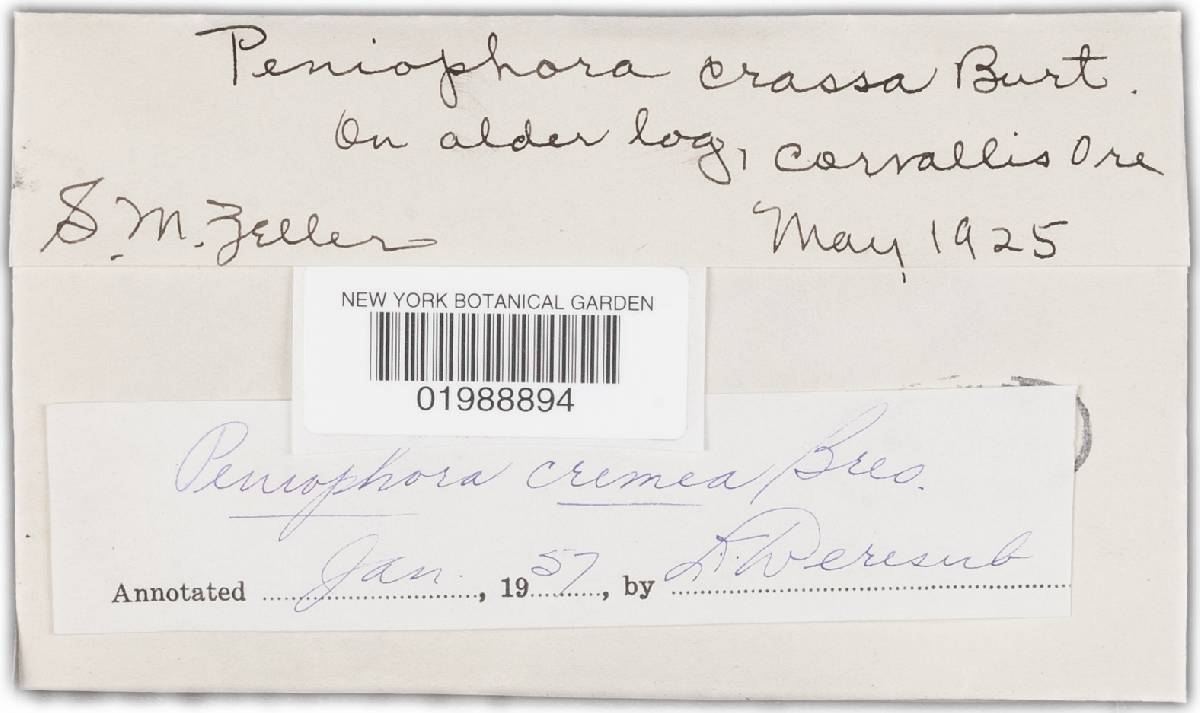 Peniophora crassa Burt.
On alder log, Corvallis Ore
S. M. Zeller May, 1925
NEW YORK BOTANICAL GARDEN
01988894
Peniophora cremea Bres.
Annotated Jan., 1957, by L. Weresub